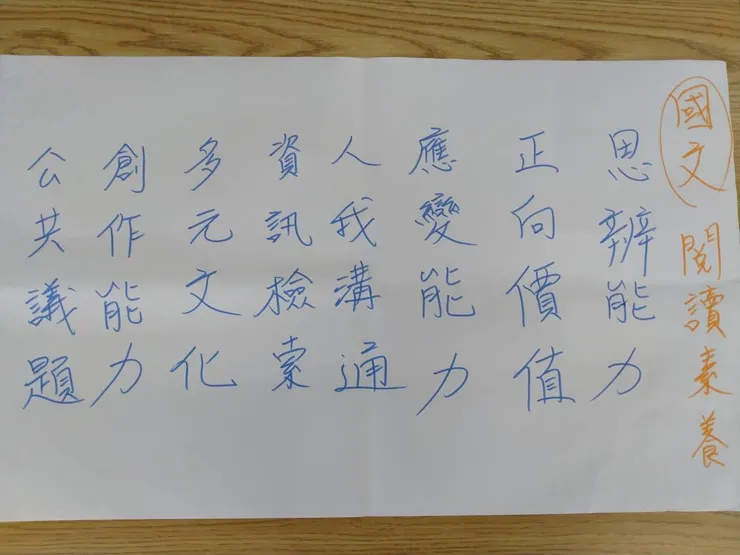 國文、閱讀素養
思辨能力
正向價值
應變能力
人我溝通
資訊檢索
多元文化
創作能力
公共議題